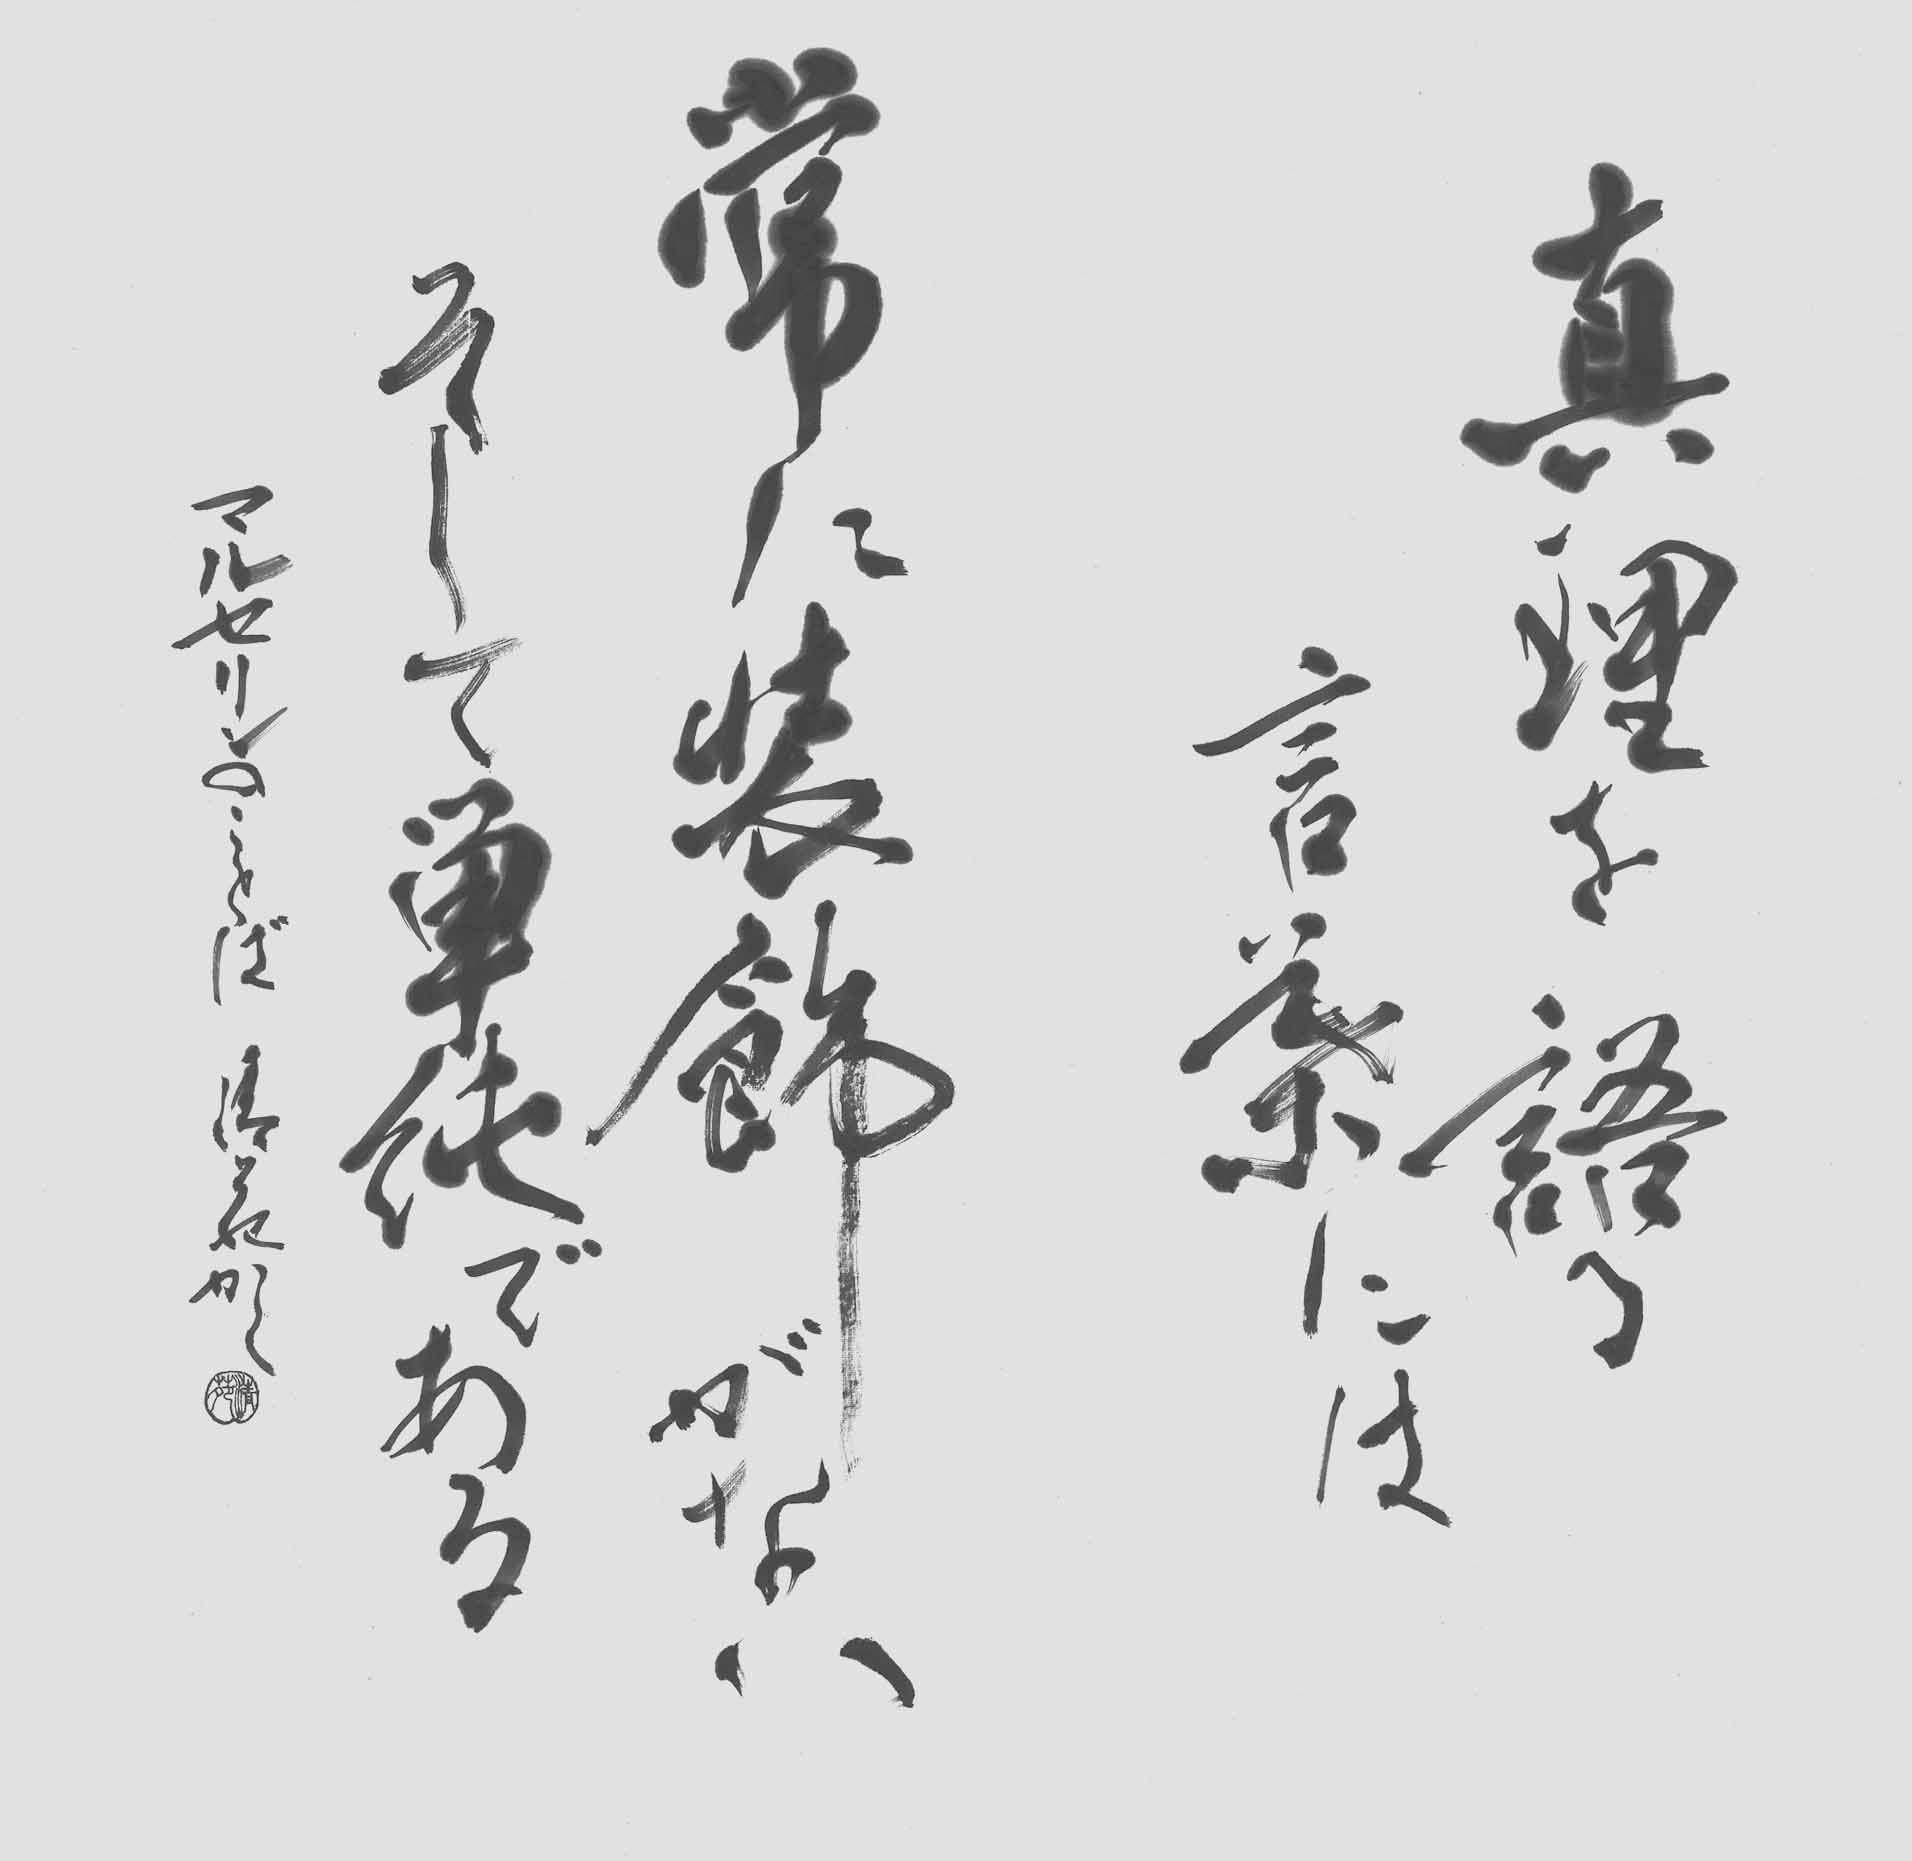 真理を語る
言葉には
常に装飾がない
そして単純である
マルセリンのことば 清苑かく
清苑